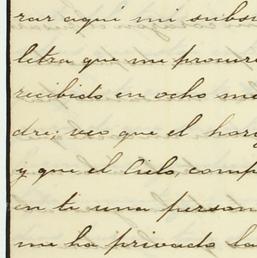 rar aquí mi subs
letra que me procur
recibido en ocho me
dre; veo que el hor
y que el Cielo, comp
en ti una person
me ha privado la